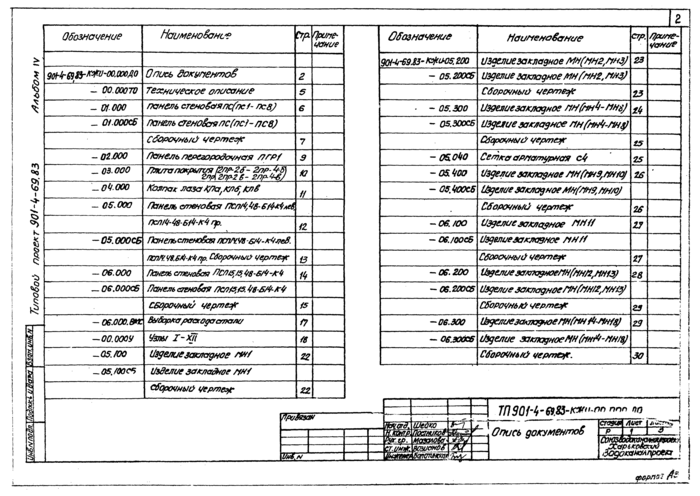 2
Альбом IV
Типовой проект 901-4-69.83
Обозначение Наименование Стр. Приме-
чание
901-4-69.83-КЖИ-00.000.ДО Опись документов 2
— 00.000ТО Техническое описание 5
— 01.000 Панель стеновая ПС(ПС1-ПС8) 6
— 01.000СБ Панель стеновая ПС(ПС1-ПС8)
Сборочный чертеж 7
— 02.000 Панель перегородочная ПГР1 9
— 03.000 Плита покрытия 10
— 04.000 Колпак лаза КПа, КПб, КПв 11
— 05.000 Панель стеновая ПСП14,48-Б14-К4 лев.
ПСП14-48-Б14-К4 пр. 12
— 05.000СБ Панель стеновая ПСП14,48-Б14-К4 лев.
ПСП14,48-Б14-К4 пр. Сборочный чертеж 13
— 06.000 Панель стеновая ПСП15,13,48-Б14-К4 14
— 06.000СБ Панель стеновая ПСП15,13,48-Б14-К4
Сборочный чертеж 15
— 06.000.ВМС Выборка расхода стали 17
— 00.000У Узлы I-XII 18
— 05.100 Изделие закладное МН1 22
— 05.100СБ Изделие закладное МН1
Сборочный чертеж 22
Обозначение Наименование стр. Приме-
чание
901-4-69.83-КЖИ-05.200 Изделие закладное МН(МН2,МН3) 23
— 05.200СБ Изделие закладное МН(МН2,МН3)
Сборочный чертеж 23
— 05.300 Изделие закладное МН(МН4-МН8) 24
— 05.300СБ Изделие закладное МН(МН4-МН8)
Сборочный чертеж 25
— 05.040 Сетка арматурная С4 25
— 05.400 Изделие закладное МН(МН9,МН10) 26
— 05.400СБ Изделие закладное МН(МН9,МН10)
Сборочный чертеж 26
— 06.100 Изделие закладное МН11 27
— 06.100СБ Изделие закладное МН11
Сборочный чертеж 27
— 06.200 Изделие закладное МН(МН12,МН13) 28
— 06.200СБ Изделие закладное МН(МН12,МН13)
Сборочный чертеж 29
— 06.300 Изделие закладное МН(МН14-МН18) 29
— 06.300СБ Изделие закладное МН(МН14-МН18)
Сборочный чертеж. 30
Инв.№подл. Подпись и дата Взам.инв.№
Привязан
Инв.№
ТП 901-4-69.83-КЖИ-00.000.ДО
Нач.отд. Шейко
Н.контр.
Рук.гр.
Ст.инж.
Опись документов
Стадия Лист Листов
Р 3
Союзводоканалпроект
Харьковский
Водоканалпроект
формат А3